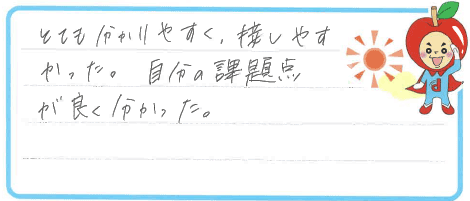 とても分かりやすく、接しやす
かった。自分の課題点
が良く分かった。
d